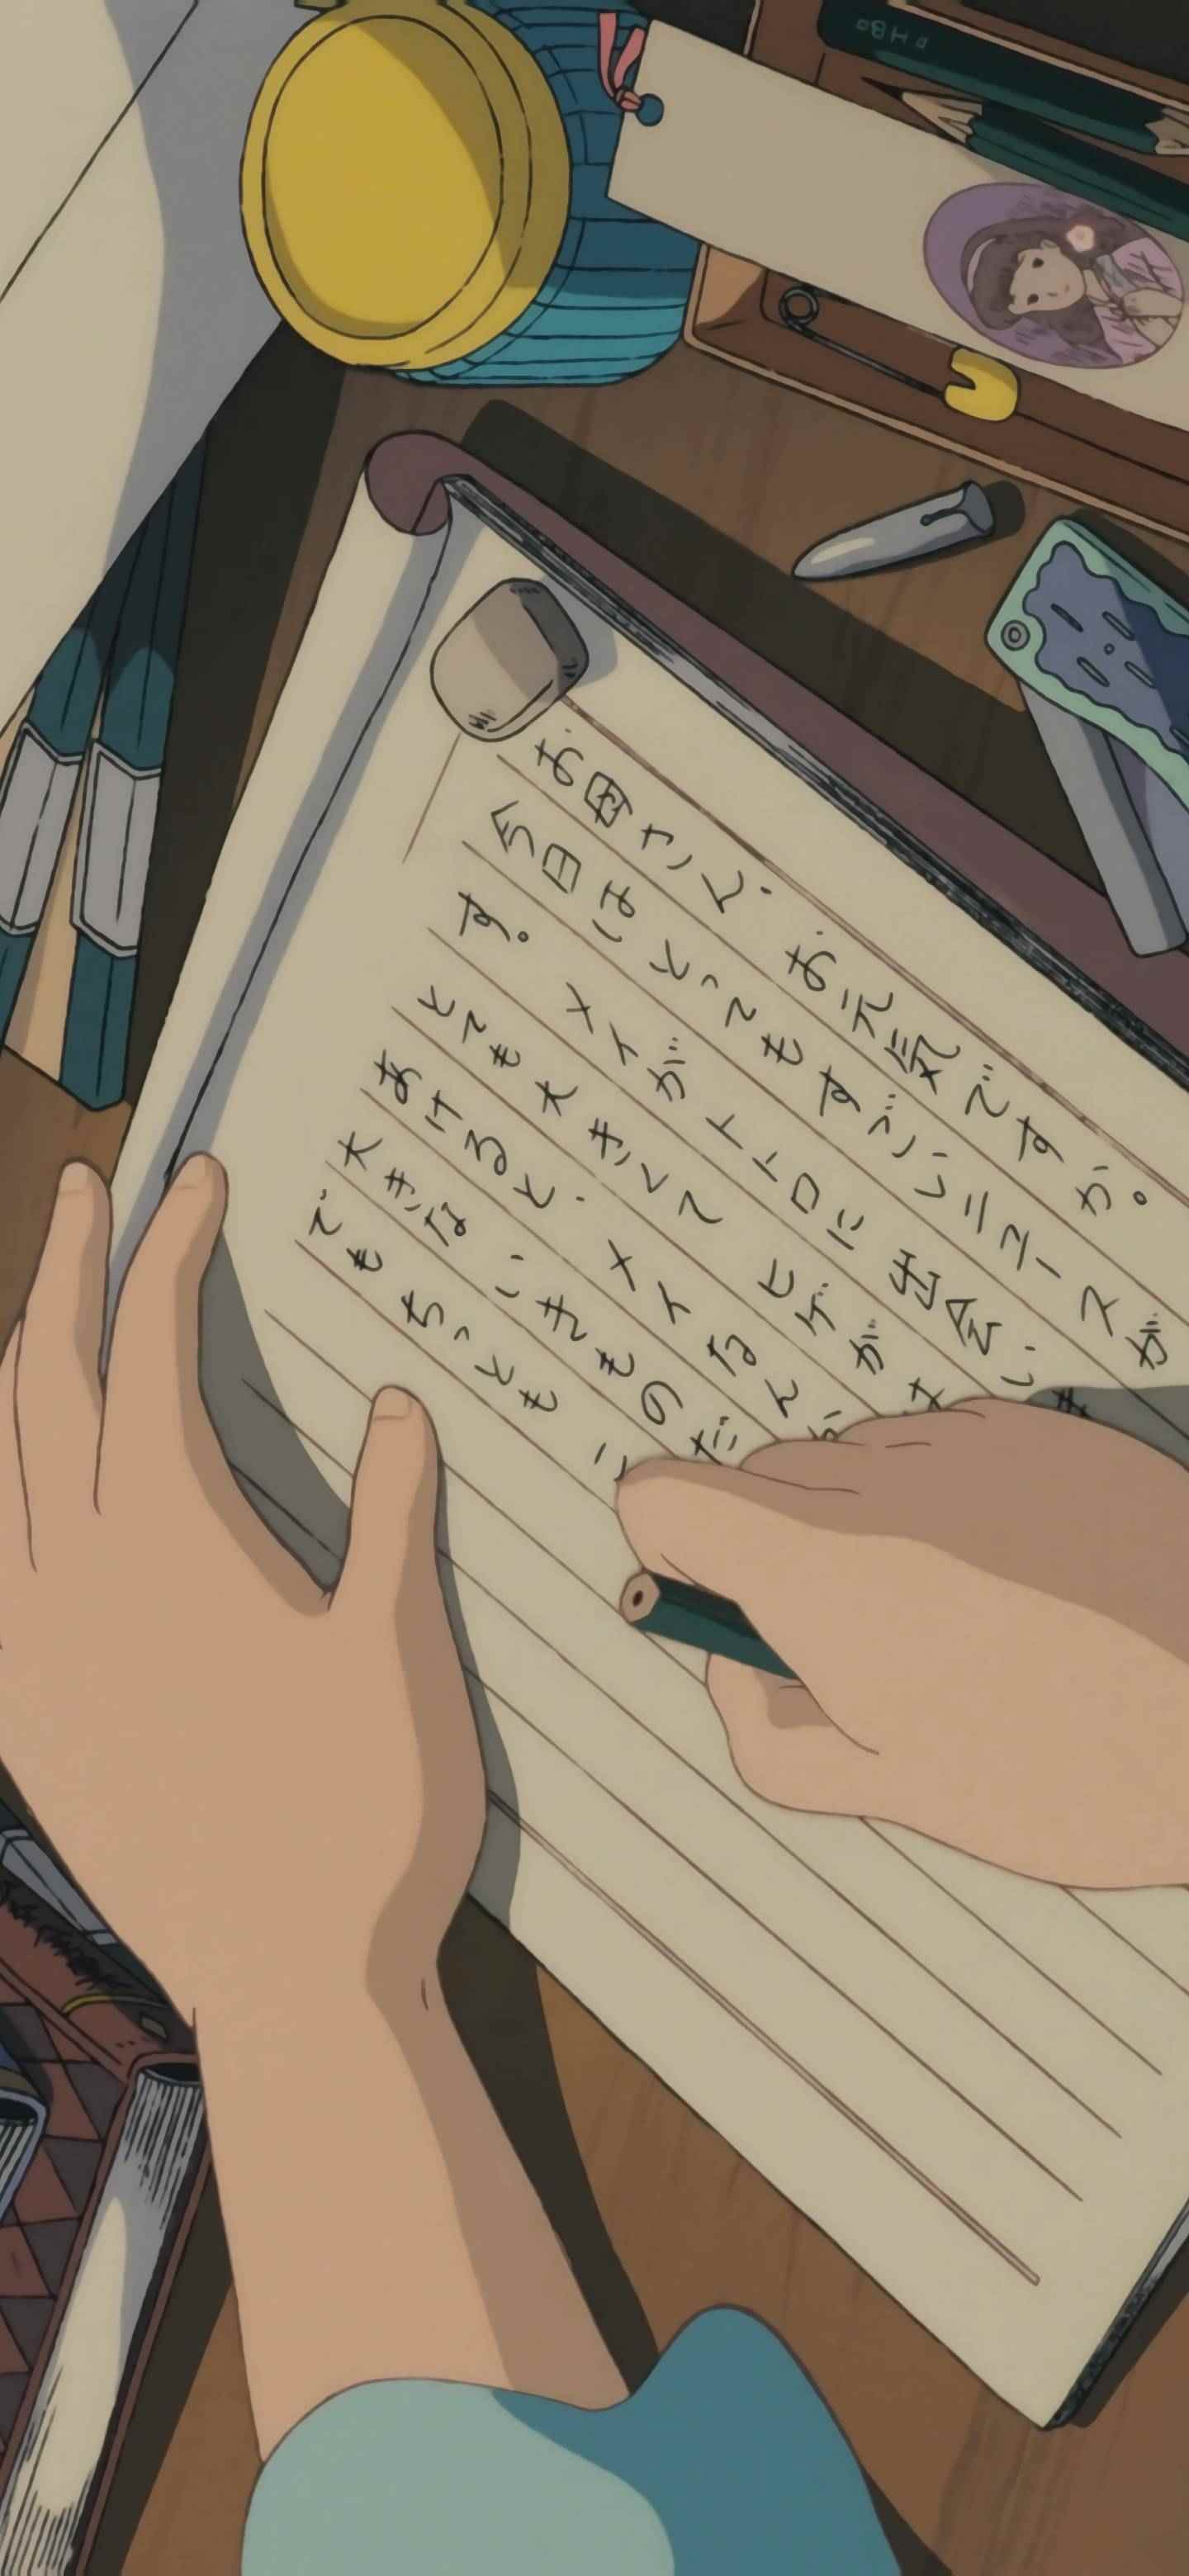 HB
お母さん、お元気ですか。
今日はとってもすごいニュースが
す。メイがトトロに出会い
とても大きくて ヒゲが
あけると、メイなんか
大きな いきものだ
でも ちっとも こ